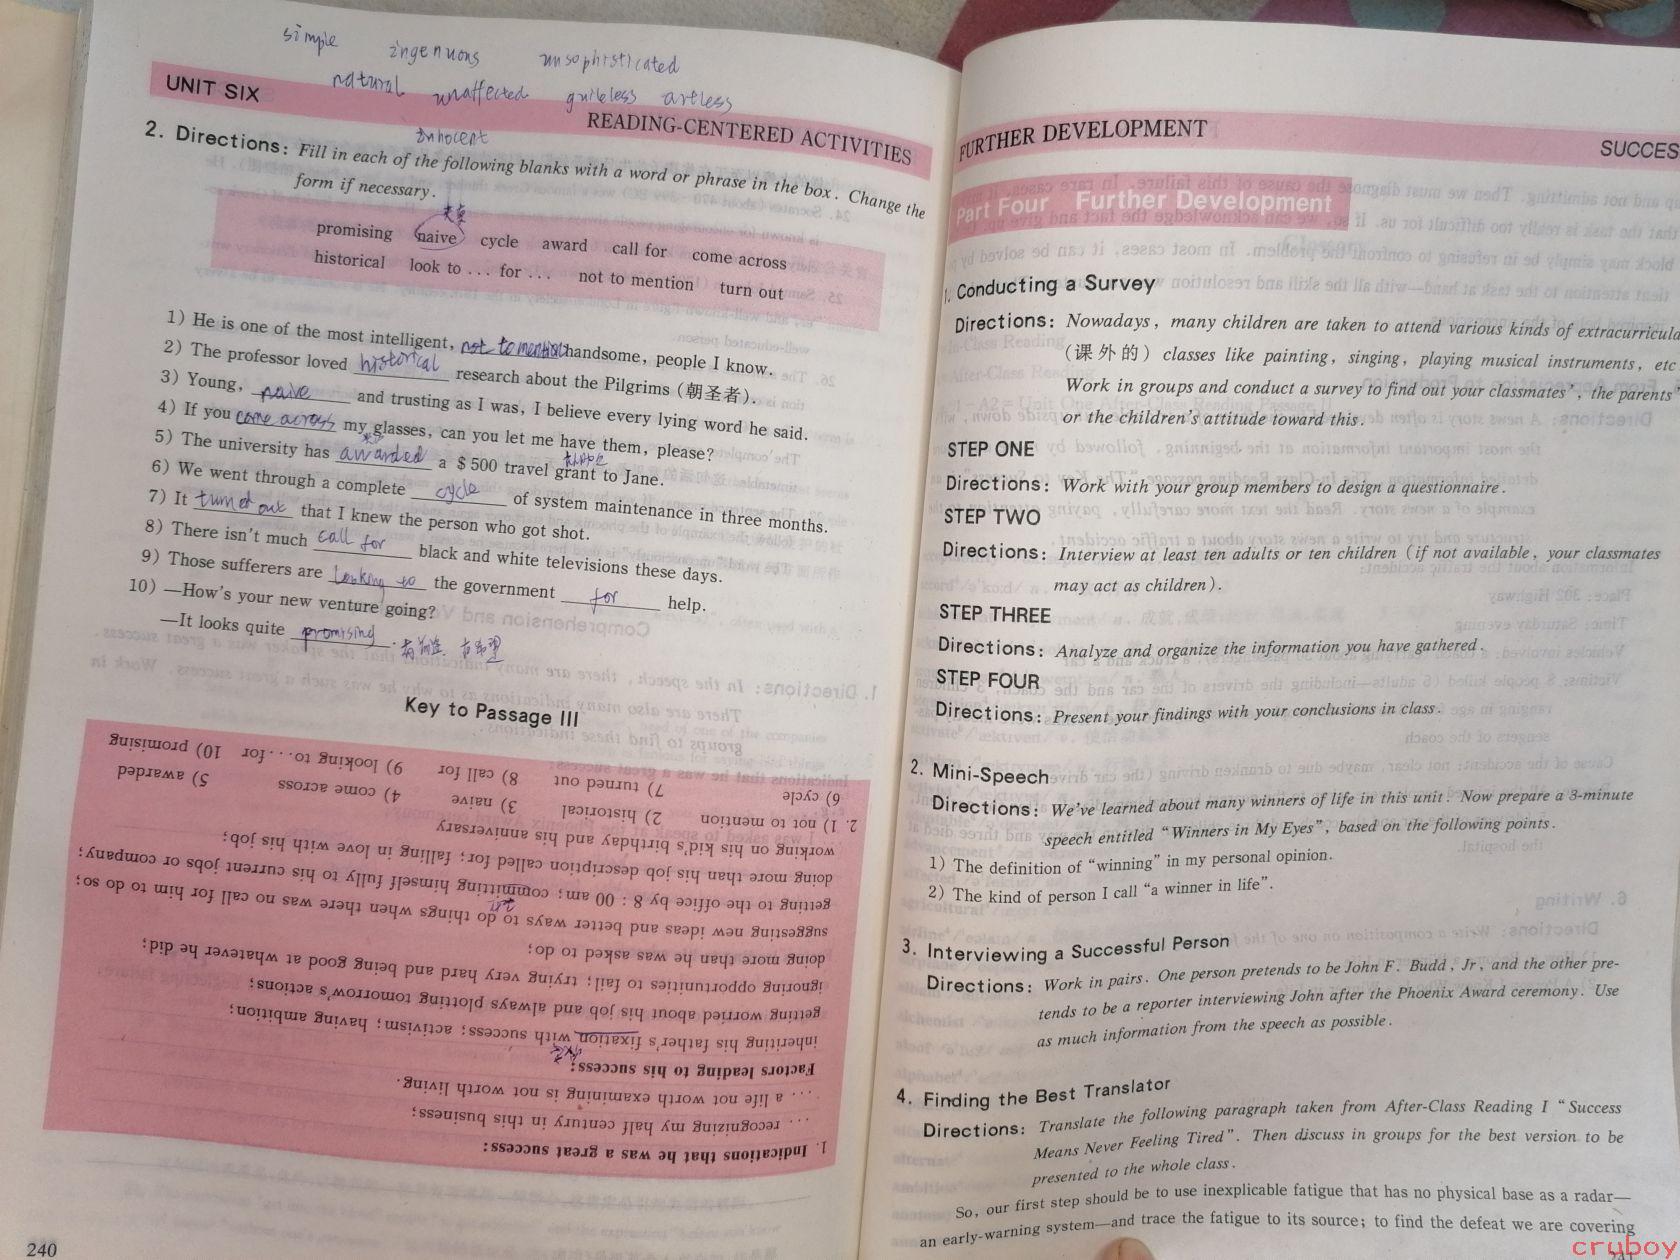 simple ingenuous unsophisticated
natural unaffected guileless artless
UNIT SIX
READING-CENTERED ACTIVITIES
innocent
2. Directions: Fill in each of the following blanks with a word or phrase in the box. Change the
form if necessary.
天真
promising naive cycle award call for come across
historical look to ... for ... not to mention turn out
1) He is one of the most intelligent, not to mention handsome, people I know.
2) The professor loved historical research about the Pilgrims (朝圣者).
3) Young, naive and trusting as I was, I believe every lying word he said.
4) If you come across my glasses, can you let me have them, please?
5) The university has awarded a $500 travel grant to Jane.
6) We went through a complete cycle of system maintenance in three months.
7) It turned out that I knew the person who got shot.
8) There isn't much call for black and white televisions these days.
9) Those sufferers are looking to the government for help.
10) —How's your new venture going?
—It looks quite promising. 有前途 有希望
Key to Passage III
1. Indications that he was a great success:
... recognizing my half century in this business;
... a life not worth examining is not worth living.
Factors leading to his success:
inheriting his father's fixation with success; activism; having ambition;
getting worried about his job and always plotting tomorrow's actions;
ignoring opportunities to fail; trying very hard and being good at whatever he did;
doing more than he was asked to do;
suggesting new ideas and better ways to do things when there was no call for him to do so;
getting to the office by 8:00 am; committing himself fully to his current jobs or company;
doing more than his job description called for; falling in love with his job;
working on his kid's birthday and his anniversary
2. 1) not to mention 2) historical 3) naive 4) come across 5) awarded
6) cycle 7) turned out 8) call for 9) looking to...for 10) promising
240
FURTHER DEVELOPMENT
SUCCES
Part Four Further Development
1. Conducting a Survey
Directions: Nowadays, many children are taken to attend various kinds of extracurricula
(课外的) classes like painting, singing, playing musical instruments, etc
Work in groups and conduct a survey to find out your classmates', the parents'
or the children's attitude toward this.
STEP ONE
Directions: Work with your group members to design a questionnaire.
STEP TWO
Directions: Interview at least ten adults or ten children (if not available, your classmates
may act as children).
STEP THREE
Directions: Analyze and organize the information you have gathered.
STEP FOUR
Directions: Present your findings with your conclusions in class.
2. Mini-Speech
Directions: We've learned about many winners of life in this unit. Now prepare a 3-minute
speech entitled “Winners in My Eyes”, based on the following points.
1) The definition of “winning” in my personal opinion.
2) The kind of person I call “a winner in life”.
3. Interviewing a Successful Person
Directions: Work in pairs. One person pretends to be John F. Budd, Jr, and the other pre-
tends to be a reporter interviewing John after the Phoenix Award ceremony. Use
as much information from the speech as possible.
4. Finding the Best Translator
Directions: Translate the following paragraph taken from After-Class Reading I “Success
Means Never Feeling Tired”. Then discuss in groups for the best version to be
presented to the whole class.
So, our first step should be to use inexplicable fatigue that has no physical base as a radar—
an early-warning system—and trace the fatigue to its source; to find the defeat we are covering
241
cruboy